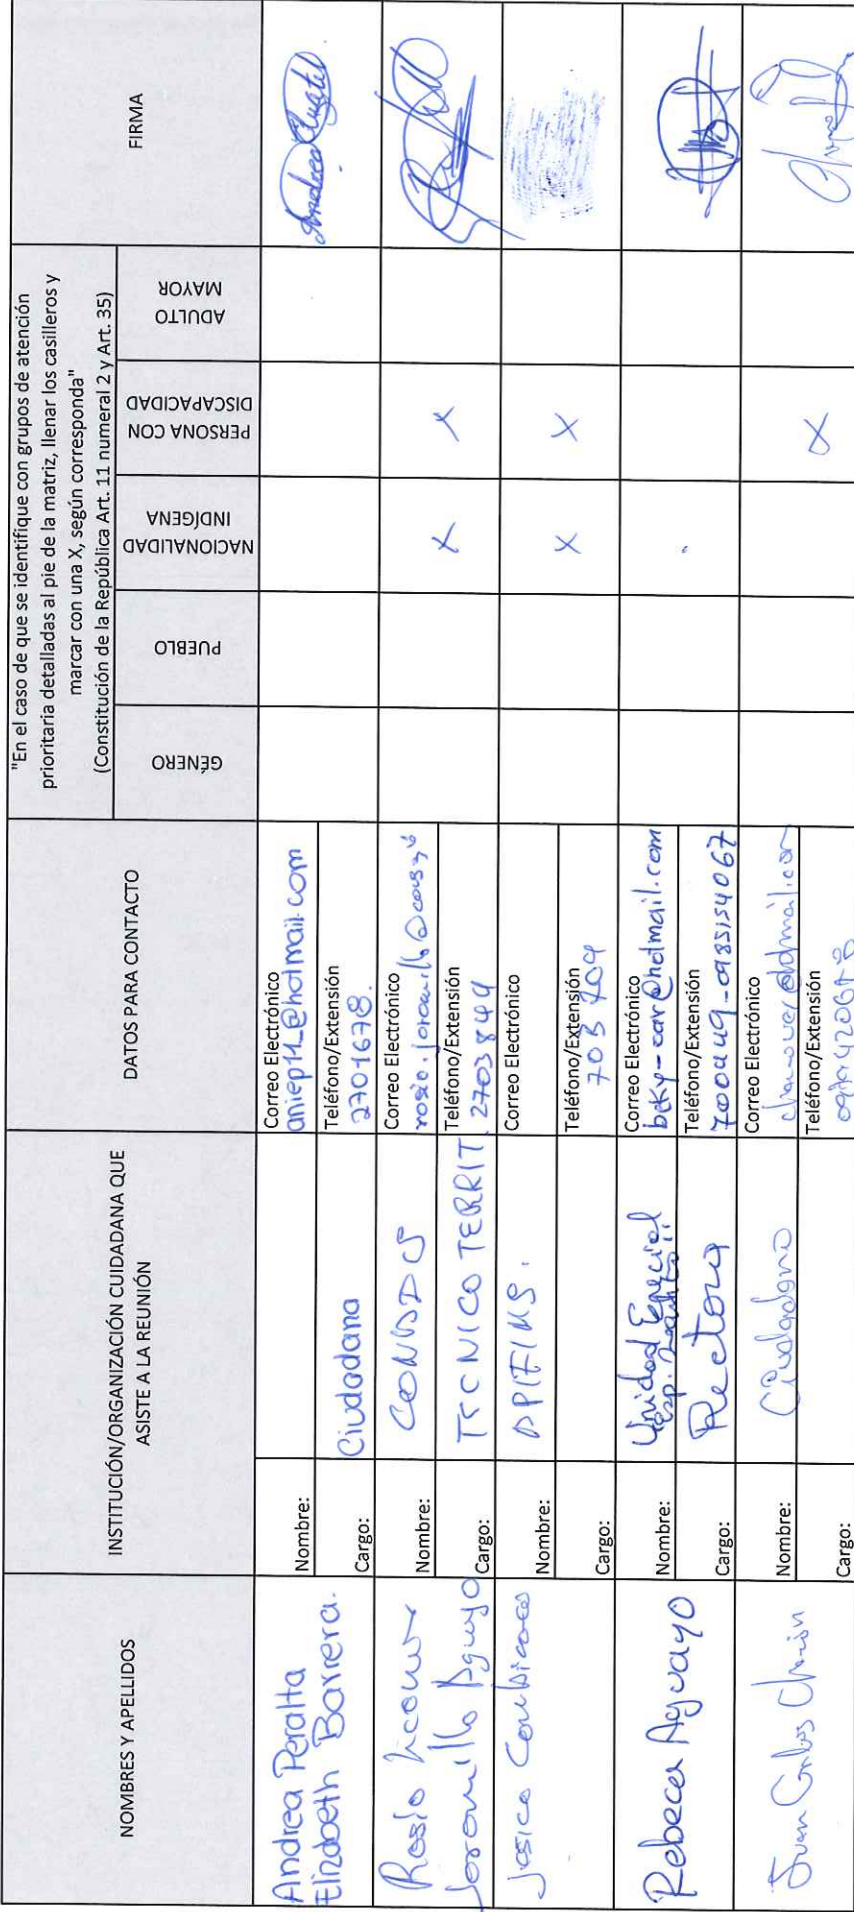 NOMBRES Y APELLIDOS
INSTITUCIÓN/ORGANIZACIÓN CUIDADANA QUE
ASISTE A LA REUNIÓN
DATOS PARA CONTACTO
"En el caso de que se identifique con grupos de atención
prioritaria detalladas al pie de la matriz, llenar los casilleros y
marcar con una X, según corresponda"
(Constitución de la República Art. 11 numeral 2 y Art. 35)
GÉNERO
PUEBLO
NACIONALIDAD
INDÍGENA
PERSONA CON
DISCAPACIDAD
ADULTO
MAYOR
FIRMA
Andrea Peralta
Elizabeth Barrera.
Nombre:
Cargo:
Ciudadana
Correo Electrónico
aniep11_@hotmail.com
Teléfono/Extensión
2701678.
Rosío
Jaramillo Aguayo
Nombre:
CONADIS
Cargo:
TECNICO TERRIT.
Correo Electrónico
Teléfono/Extensión
2703844
X
X
Jesica
Nombre:
APIFIMS.
Cargo:
Correo Electrónico
Teléfono/Extensión
703704
X
X
Rebeca Aguayo
Nombre:
Unidad Especial
Cargo:
Rectora
Correo Electrónico
beky-ear@hotmail.com
Teléfono/Extensión
700449-0985154067
Juan Carlos
Nombre:
Ciudadano
Cargo:
Correo Electrónico
Teléfono/Extensión
X